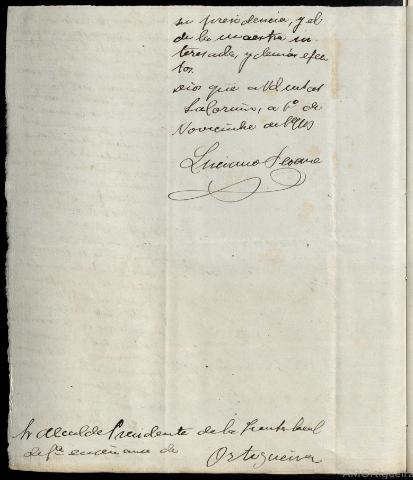 su presidencia, y el
de la maestra in-
teresada, y demás efec-
tos.
Dios gue a Vd muchos
a 1º de
Noviembre de 1910
Luciano Seoane
Sr Alcalde Presidente de la Junta local
de 1ª enseñanza de Ortigueira
AMOrtigueira